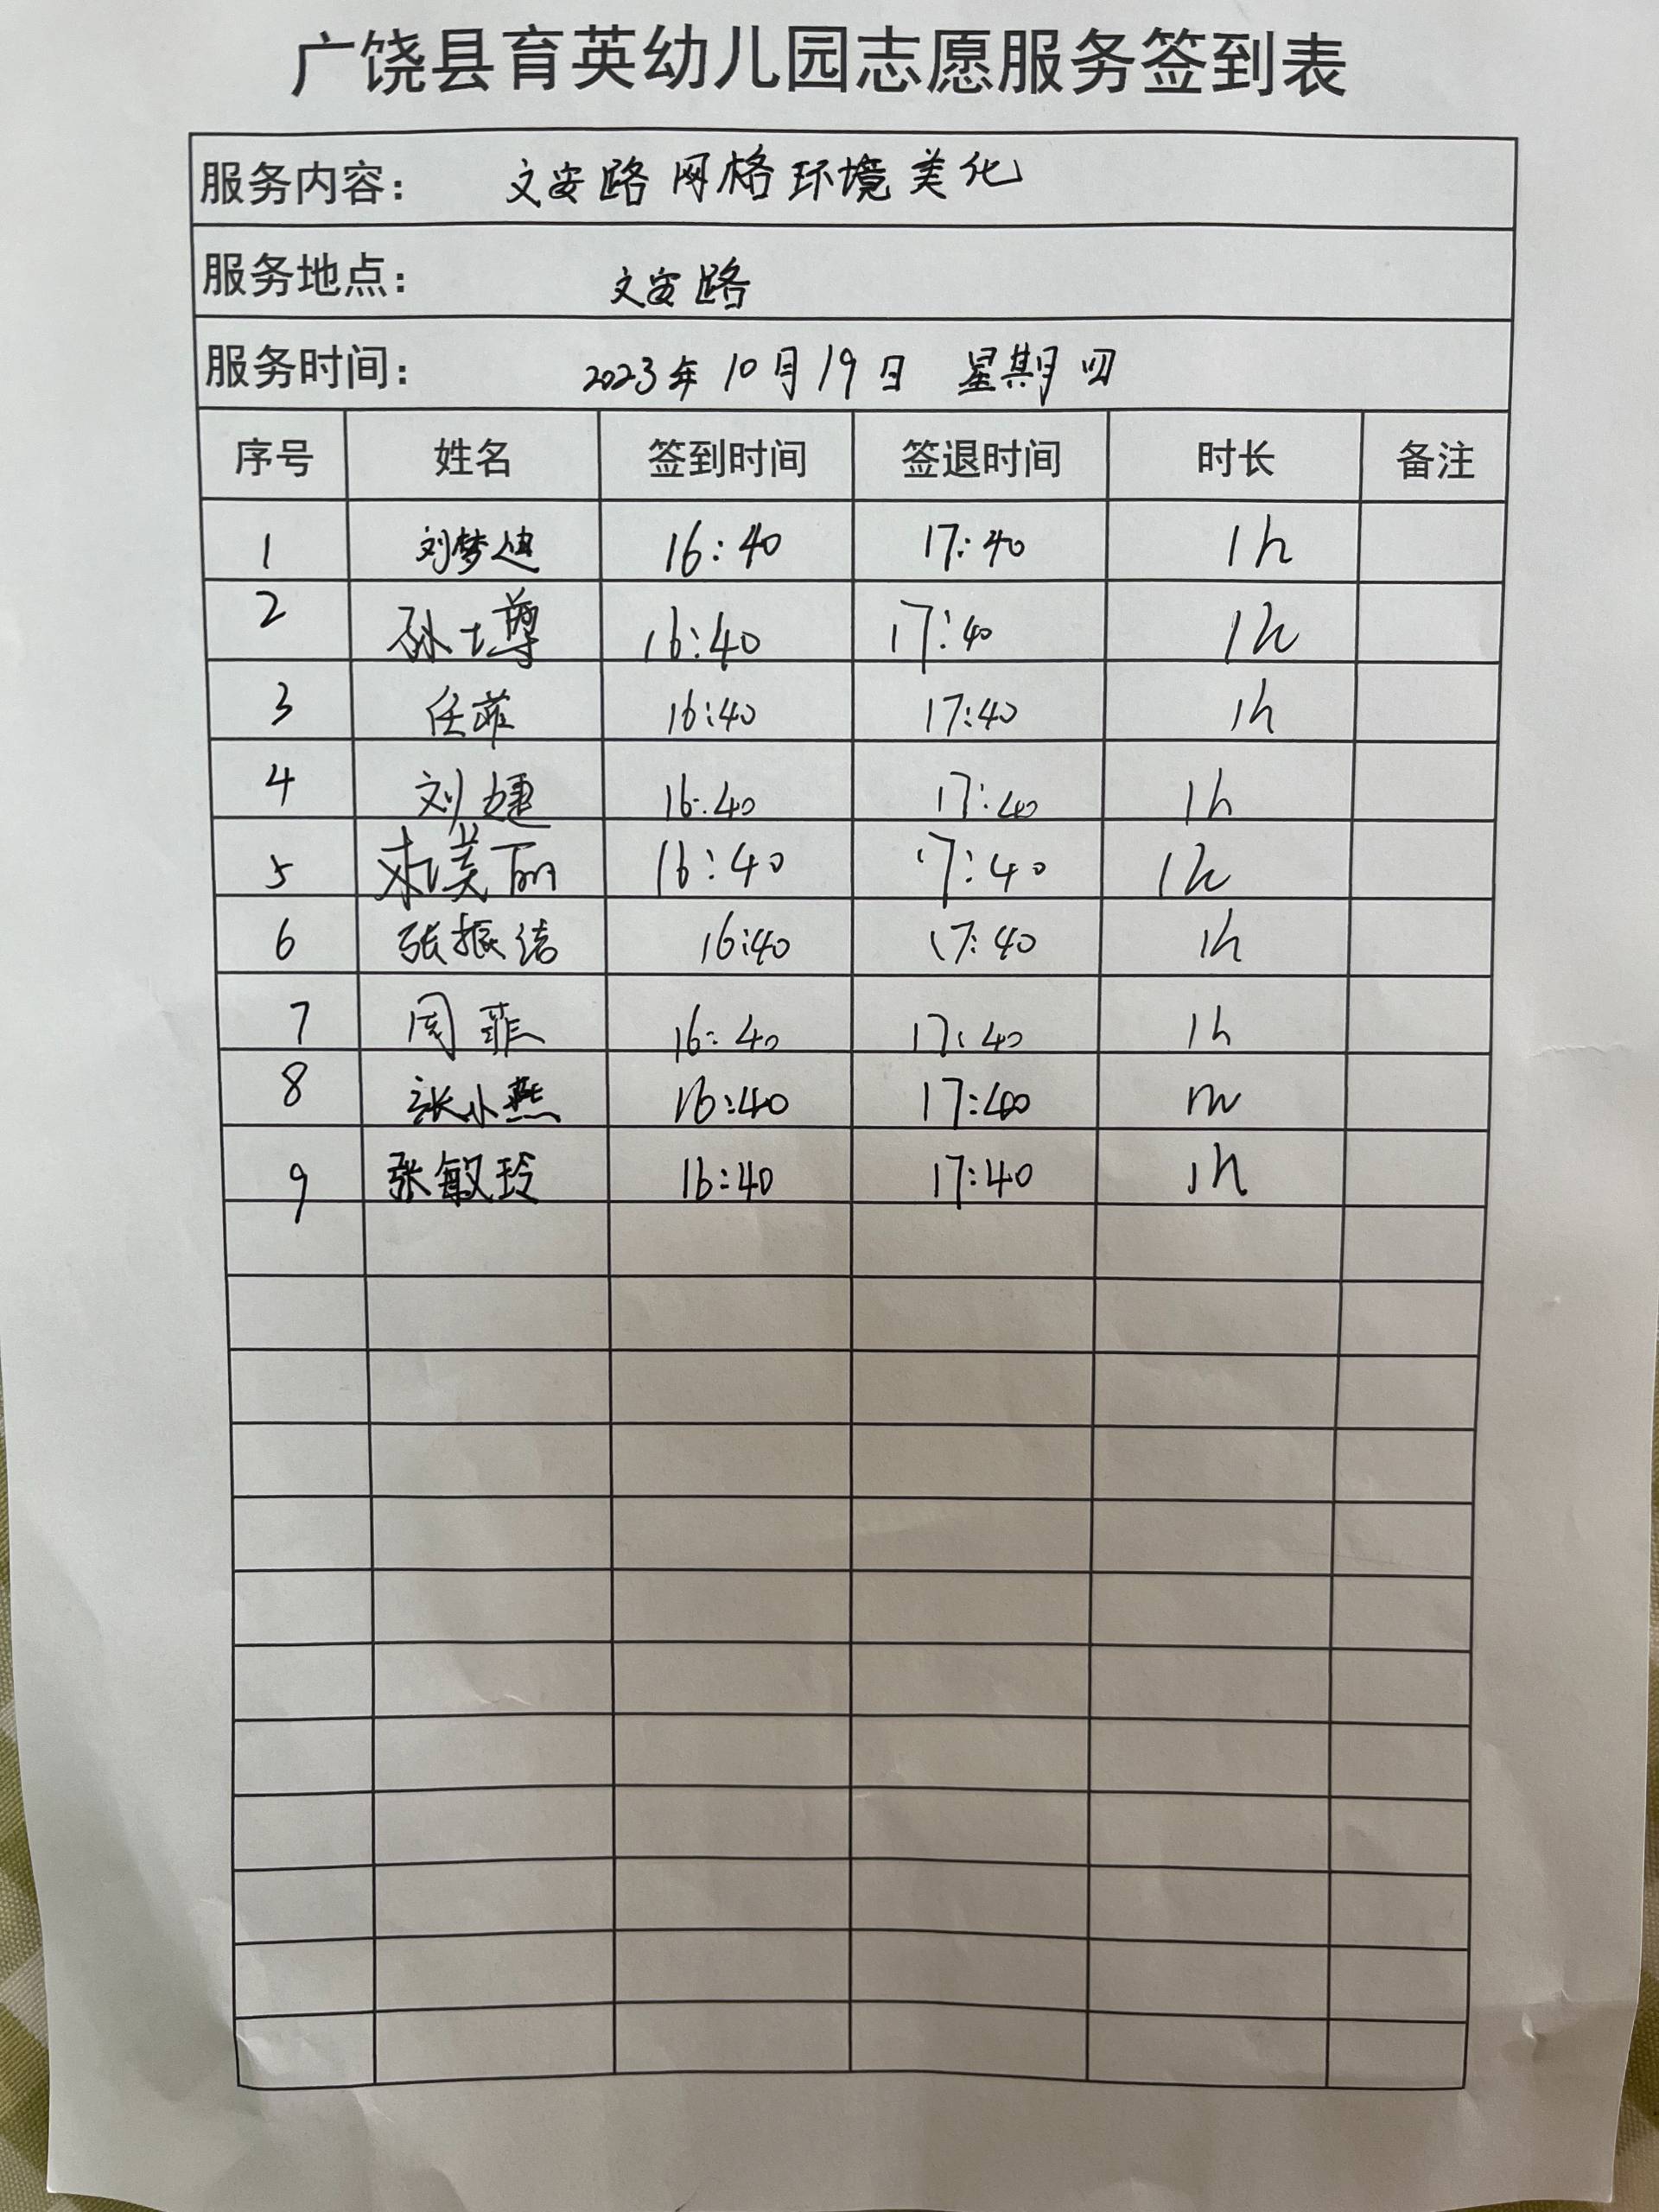 广饶县育英幼儿园志愿服务签到表
服务内容： 文安路网格环境美化
服务地点： 文安路
服务时间： 2023年10月19日 星期四
序号 姓名 签到时间 签退时间 时长 备注
1 刘梦迪 16:40 17:40 1h
2 孙士尊 16:40 17:40 1h
3 任菲 16:40 17:40 1h
4 刘婕 16:40 17:40 1h
5 美丽 16:40 17:40 1h
6 张振洁 16:40 17:40 1h
7 周菲 16:40 17:40 1h
8 张小燕 16:40 17:40 1h
9 张敏玲 16:40 17:40 1h